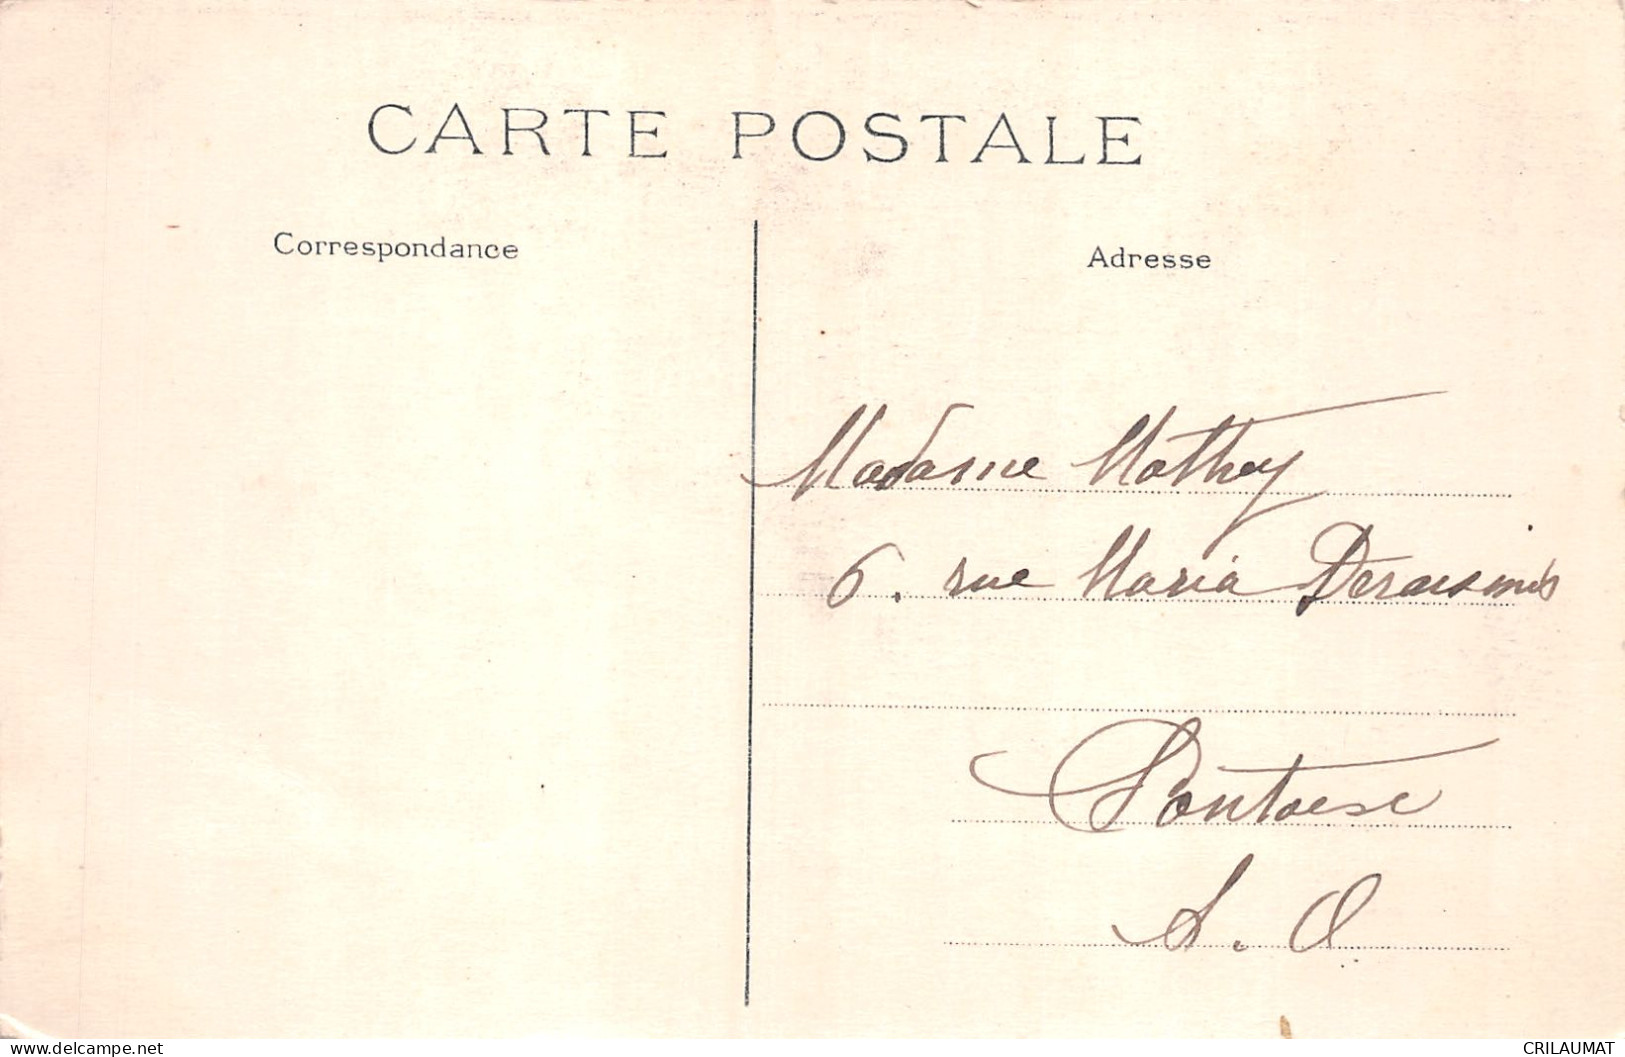 CARTE POSTALE
Correspondance
Adresse
Madame Mathey
6. rue Maria Deraismes
Pontoise
S. O
delcampe.net
CRILAUMAT